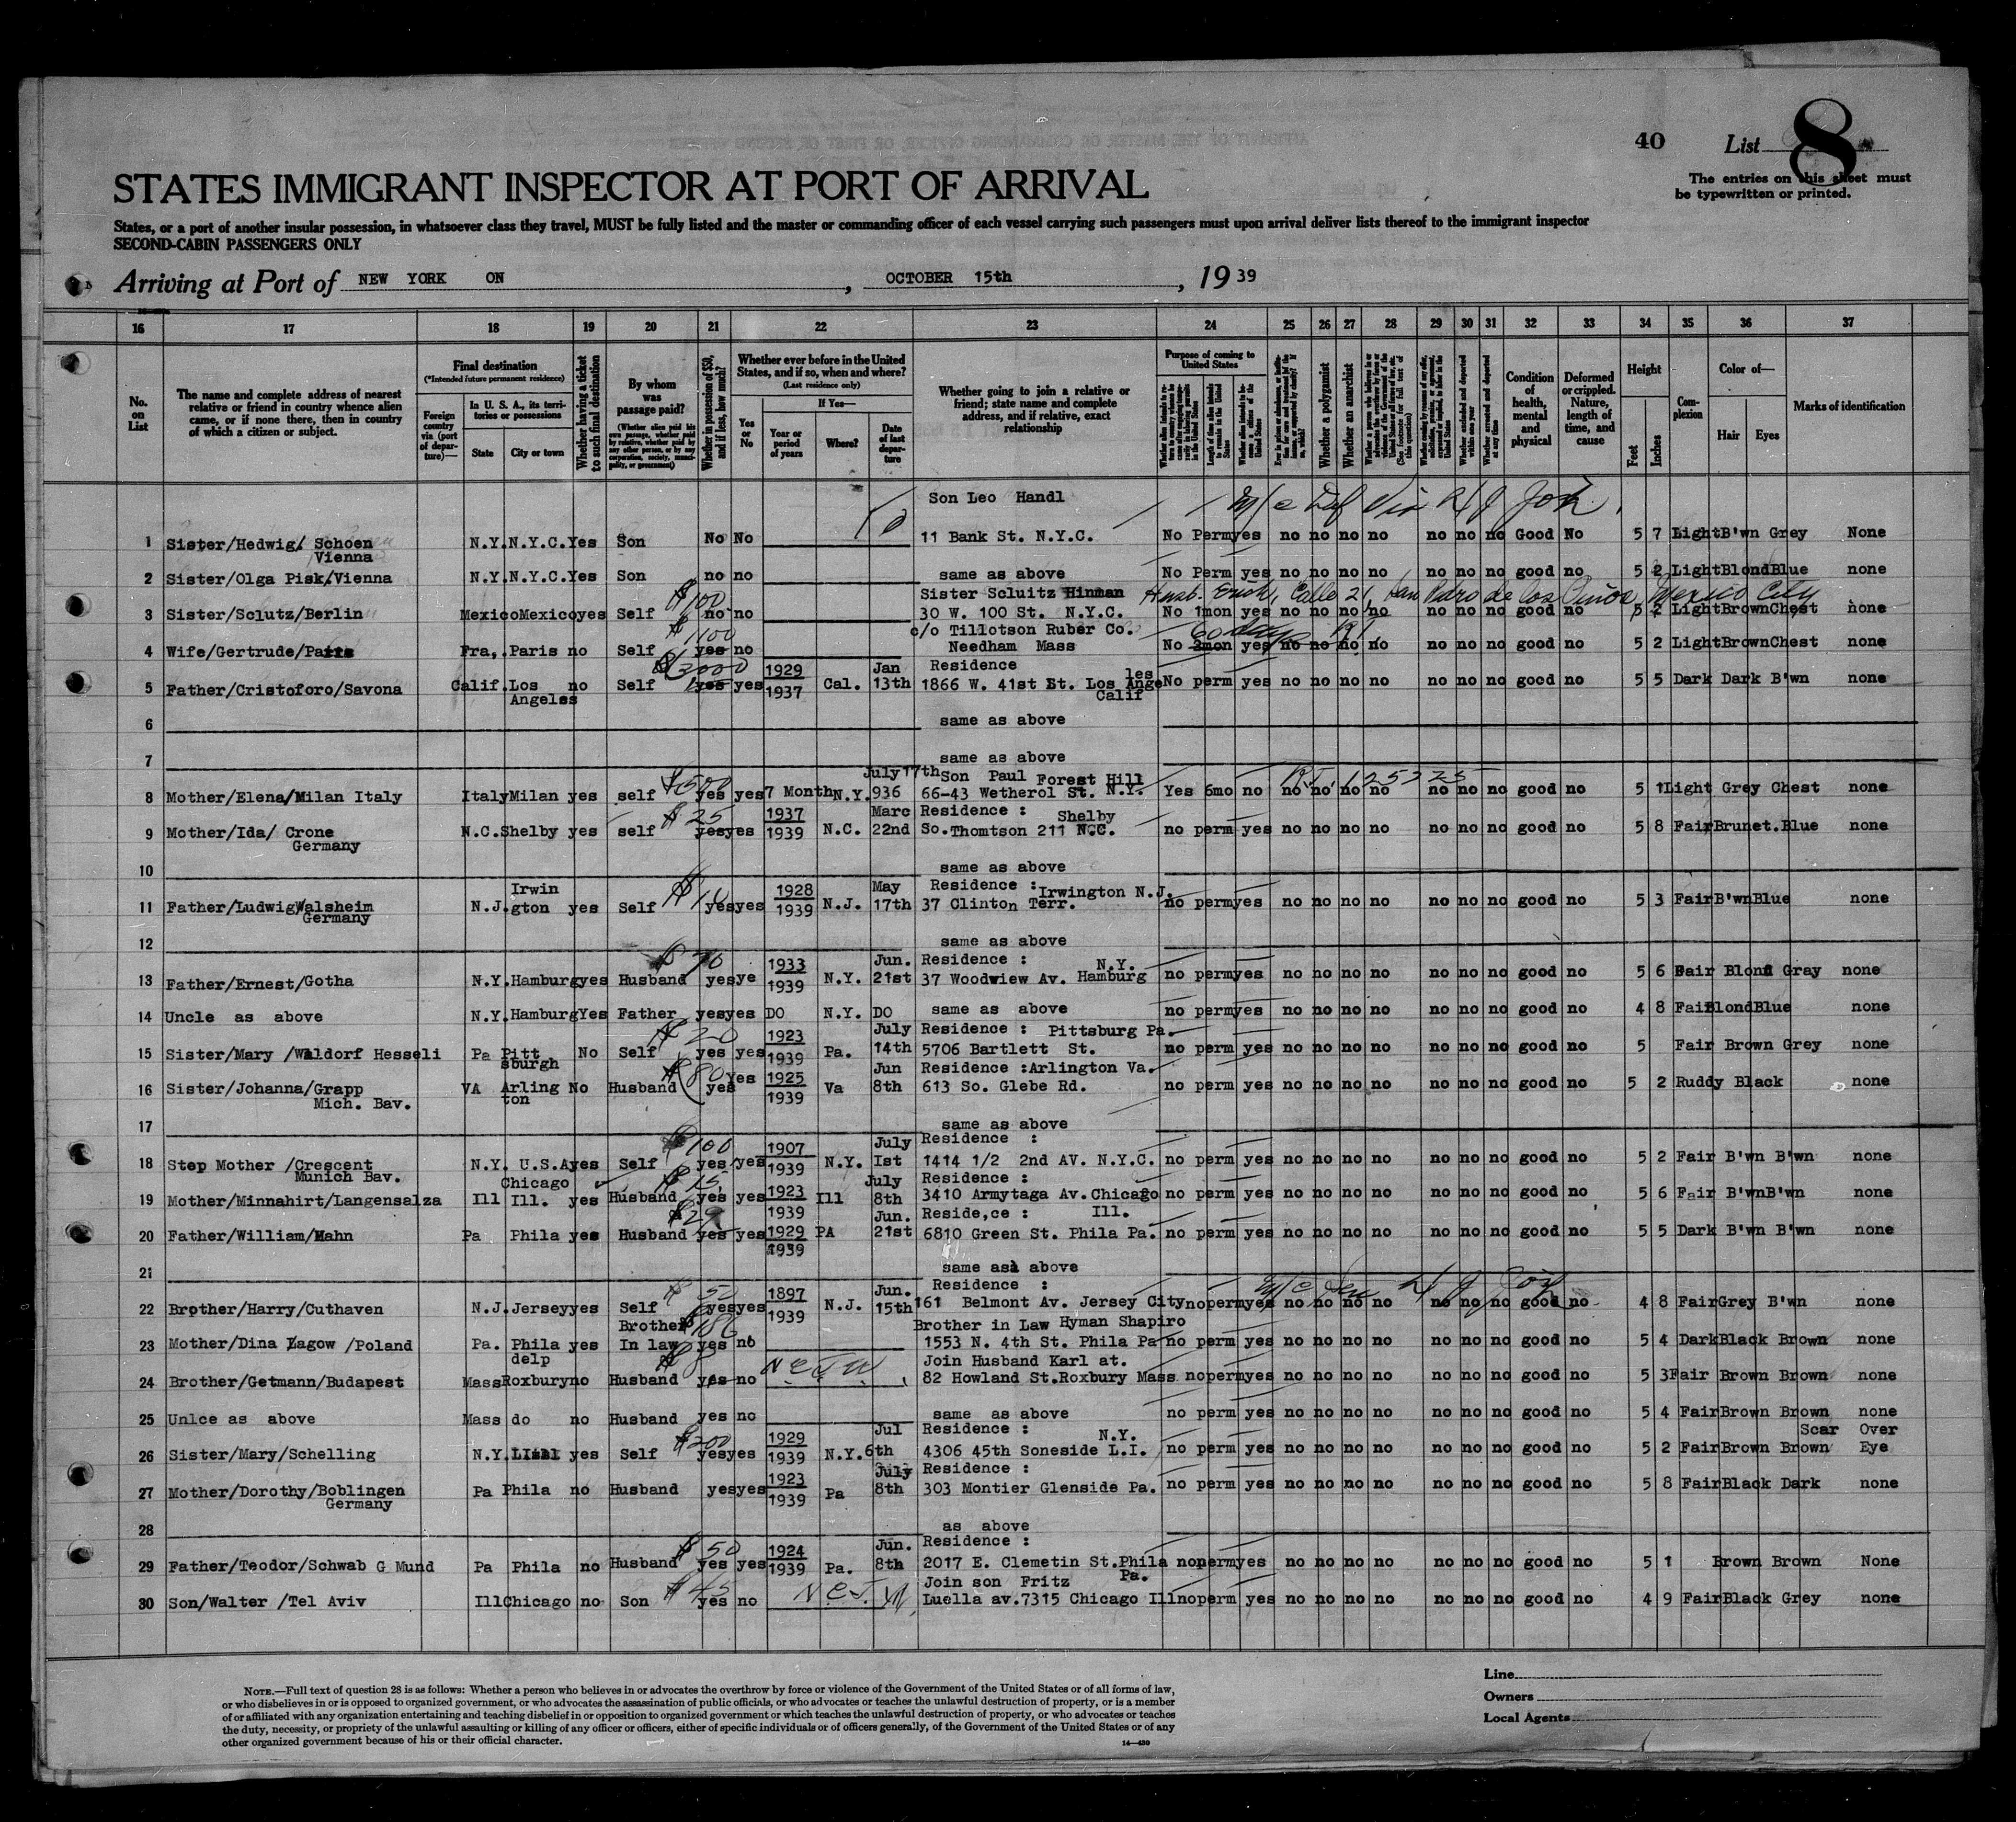 40 List 8
The entries on this sheet must
be typewritten or printed.
STATES IMMIGRANT INSPECTOR AT PORT OF ARRIVAL
States, or a port of another insular possession, in whatsoever class they travel, MUST be fully listed and the master or commanding officer of each vessel carrying such passengers must upon arrival deliver lists thereof to the immigrant inspector
SECOND-CABIN PASSENGERS ONLY
Arriving at Port of NEW YORK ON , OCTOBER 15th , 19 39
16 17 18 19 20 21 22 23 24 25 26 27 28 29 30 31 32 33 34 35 36 37
No. on List
The name and complete address of nearest relative or friend in country whence alien came, or if none there, then in country of which a citizen or subject.
Final destination
(*Intended future permanent residence)
Foreign country via (port of departure)—
In U. S. A., its territories or possessions
State City or town
Whether having a ticket to such final destination
By whom was passage paid?
(Whether alien paid his own passage, whether paid by relative, whether paid by any other person, or by any corporation, society, municipality, or government)
Whether in possession of $50, and if less, how much?
Whether ever before in the United States, and if so, when and where?
(Last residence only)
Yes or No
If Yes—
Year or period of years
Where?
Date of last departure
Whether going to join a relative or friend; state name and complete address, and if relative, exact relationship
Purpose of coming to United States
Whether a polygamist
Whether an anarchist
Condition of health, mental and physical
Deformed or crippled. Nature, length of time, and cause
Height
Feet Inches
Complexion
Color of—
Hair Eyes
Marks of identification
Son Leo Handl
1 Sister/Hedwig/ Schoen N.Y. N.Y.C. Yes Son No No 11 Bank St. N.Y.C. No Perm yes no no no no no no no Good No 5 7 Light B'wn Grey None
Vienna
2 Sister/Olga Pisk/Vienna N.Y. N.Y.C. Yes Son no no same as above No Perm yes no no no no no no no good no 5 2 Light Blond Blue none
Sister Scluitz Hinman Husb. Erich, Calle 21, San Pedro de los Pinos, Mexico City
3 Sister/Sclutz/Berlin Mexico Mexico yes Self $100 no no 30 W. 100 St. N.Y.C. No 1mon yes no no no no no no no good no 5 2 Light Brown Chest none
c/o Tillotson Ruber Co. 60 days
4 Wife/Gertrude/Paris Fra, Paris no Self $1100 yes no Needham Mass No 2mon yes no no no no no no no good no 5 2 Light Brown Chest none
$3000 1929 Jan Residence
5 Father/Cristoforo/Savona Calif. Los no Self yes yes 1937 Cal. 13th 1866 W. 41st St. Los Angeles No perm yes no no no no no no no good no 5 5 Dark Dark B'wn none
Angeles Calif
6 same as above
7 same as above
July 17th Son Paul Forest Hill
8 Mother/Elena/Milan Italy Italy Milan yes self $500 yes yes 7 Month N.Y. 936 66-43 Wetherol St. N.Y. Yes 6mo no no no no no no no no good no 5 1 Light Grey Chest none
$25 1937 Marc Residence : Shelby
9 Mother/Ida/ Crone N.C. Shelby yes self yes yes 1939 N.C. 22nd So. Thomtson 211 N.C. no perm yes no no no no no no no good no 5 8 Fair Brunet. Blue none
Germany
10 same as above
Irwin 1928 May Residence : Irwington N.J.
11 Father/Ludwig/Walsheim N.J. gton yes Self $10 yes yes 1939 N.J. 17th 37 Clinton Terr. no perm yes no no no no no no no good no 5 3 Fair B'wn Blue none
Germany
12 same as above
$70 1933 Jun. Residence : N.Y.
13 Father/Ernest/Gotha N.Y. Hamburg yes Husband yes ye 1939 N.Y. 21st 37 Woodwiew Av. Hamburg no perm yes no no no no no no no good no 5 6 Fair Blond Gray none
14 Uncle as above N.Y. Hamburg Yes Father yes yes DO N.Y. DO same as above no perm yes no no no no no no no good no 4 8 Fair Blond Blue none
$20 1923 July Residence : Pittsburg Pa.
15 Sister/Mary /Waldorf Hesseli Pa Pitt No Self yes yes 1939 Pa. 14th 5706 Bartlett St. no perm yes no no no no no no no good no 5 Fair Brown Grey none
sburgh $80 Yes 1925 Jun Residence : Arlington Va.
16 Sister/Johanna/Grapp VA Arling No Husband yes 1939 Va 8th 613 So. Glebe Rd. no perm yes no no no no no no no good no 5 2 Ruddy Black none
Mich. Bav. ton
17 same as above
$100 1907 July Residence :
18 Step Mother /Crescent N.Y. U.S.A yes Self yes yes 1939 N.Y. Ist 1414 1/2 2nd AV. N.Y.C. no perm yes no no no no no no no good no 5 2 Fair B'wn B'wn none
Munich Bav. Chicago $15 1923 July Residence :
19 Mother/Minnahirt/Langensalza Ill Ill. yes Husband yes yes 1939 Ill 8th 3410 Armytaga Av. Chicago no perm yes no no no no no no no good no 5 6 Fair B'wn B'wn none
Jun. Reside,ce : Ill.
20 Father/William/Hahn Pa Phila yes Husband yes yes 1929 PA 21st 6810 Green St. Phila Pa. no perm yes no no no no no no no good no 5 5 Dark B'wn B'wn none
1939
21 same asà above
$50 1897 Jun. Residence :
22 Brother/Harry/Cuthaven N.J. Jersey yes Self yes yes 1939 N.J. 15th 161 Belmont Av. Jersey City no perm yes no no no no no no no good no 4 8 Fair Grey B'wn none
Brother $186 Brother in Law Hyman Shapiro
23 Mother/Dina Zagow /Poland Pa. Phila yes In law yes no 1553 N. 4th St. Phila Pa no perm yes no no no no no no no good no 5 4 Dark Black Brown none
delp $8 Join Husband Karl at.
24 Brother/Getmann/Budapest Mass Roxbury no Husband yes no 82 Howland St. Roxbury Mass no perm yes no no no no no no no good no 5 3 Fair Brown Brown none
25 Unlce as above Mass do no Husband yes no same as above no perm yes no no no no no no no good no 5 4 Fair Brown Brown none
$200 1929 Jul Residence : N.Y. Scar Over
26 Sister/Mary/Schelling N.Y. yes Self yes yes 1939 N.Y. 6th 4306 45th Soneside L.I. no perm yes no no no no no no no good no 5 2 Fair Brown Brown Eye
1923 July Residence :
27 Mother/Dorothy/Boblingen Pa Phila no Husband yes yes 1939 Pa 8th 303 Montier Glenside Pa. no perm yes no no no no no no no good no 5 8 Fair Black Dark none
Germany
28 as above
$50 1924 Jun. Residence :
29 Father/Teodor/Schwab G Mund Pa Phila no Husband yes yes 1939 Pa. 8th 2017 E. Clemetin St. Phila no perm yes no no no no no no no good no 5 1 Brown Brown None
$45 Join son Fritz Pa.
30 Son/Walter /Tel Aviv Ill Chicago no Son yes no Luella av. 7315 Chicago Ill no perm yes no no no no no no no good no 4 9 Fair Black Grey none
NOTE.—Full text of question 28 is as follows: Whether a person who believes in or advocates the overthrow by force or violence of the Government of the United States or of all forms of law,
or who disbelieves in or is opposed to organized government, or who advocates the assassination of public officials, or who advocates or teaches the unlawful destruction of property, or is a member
of or affiliated with any organization entertaining and teaching disbelief in or opposition to organized government or which teaches the unlawful destruction of property, or who advocates or teaches
the duty, necessity, or propriety of the unlawful assaulting or killing of any officer or officers, either of specific individuals or of officers generally, of the Government of the United States or of any
other organized government because of his or their official character.
14—430
Line
Owners
Local Agents